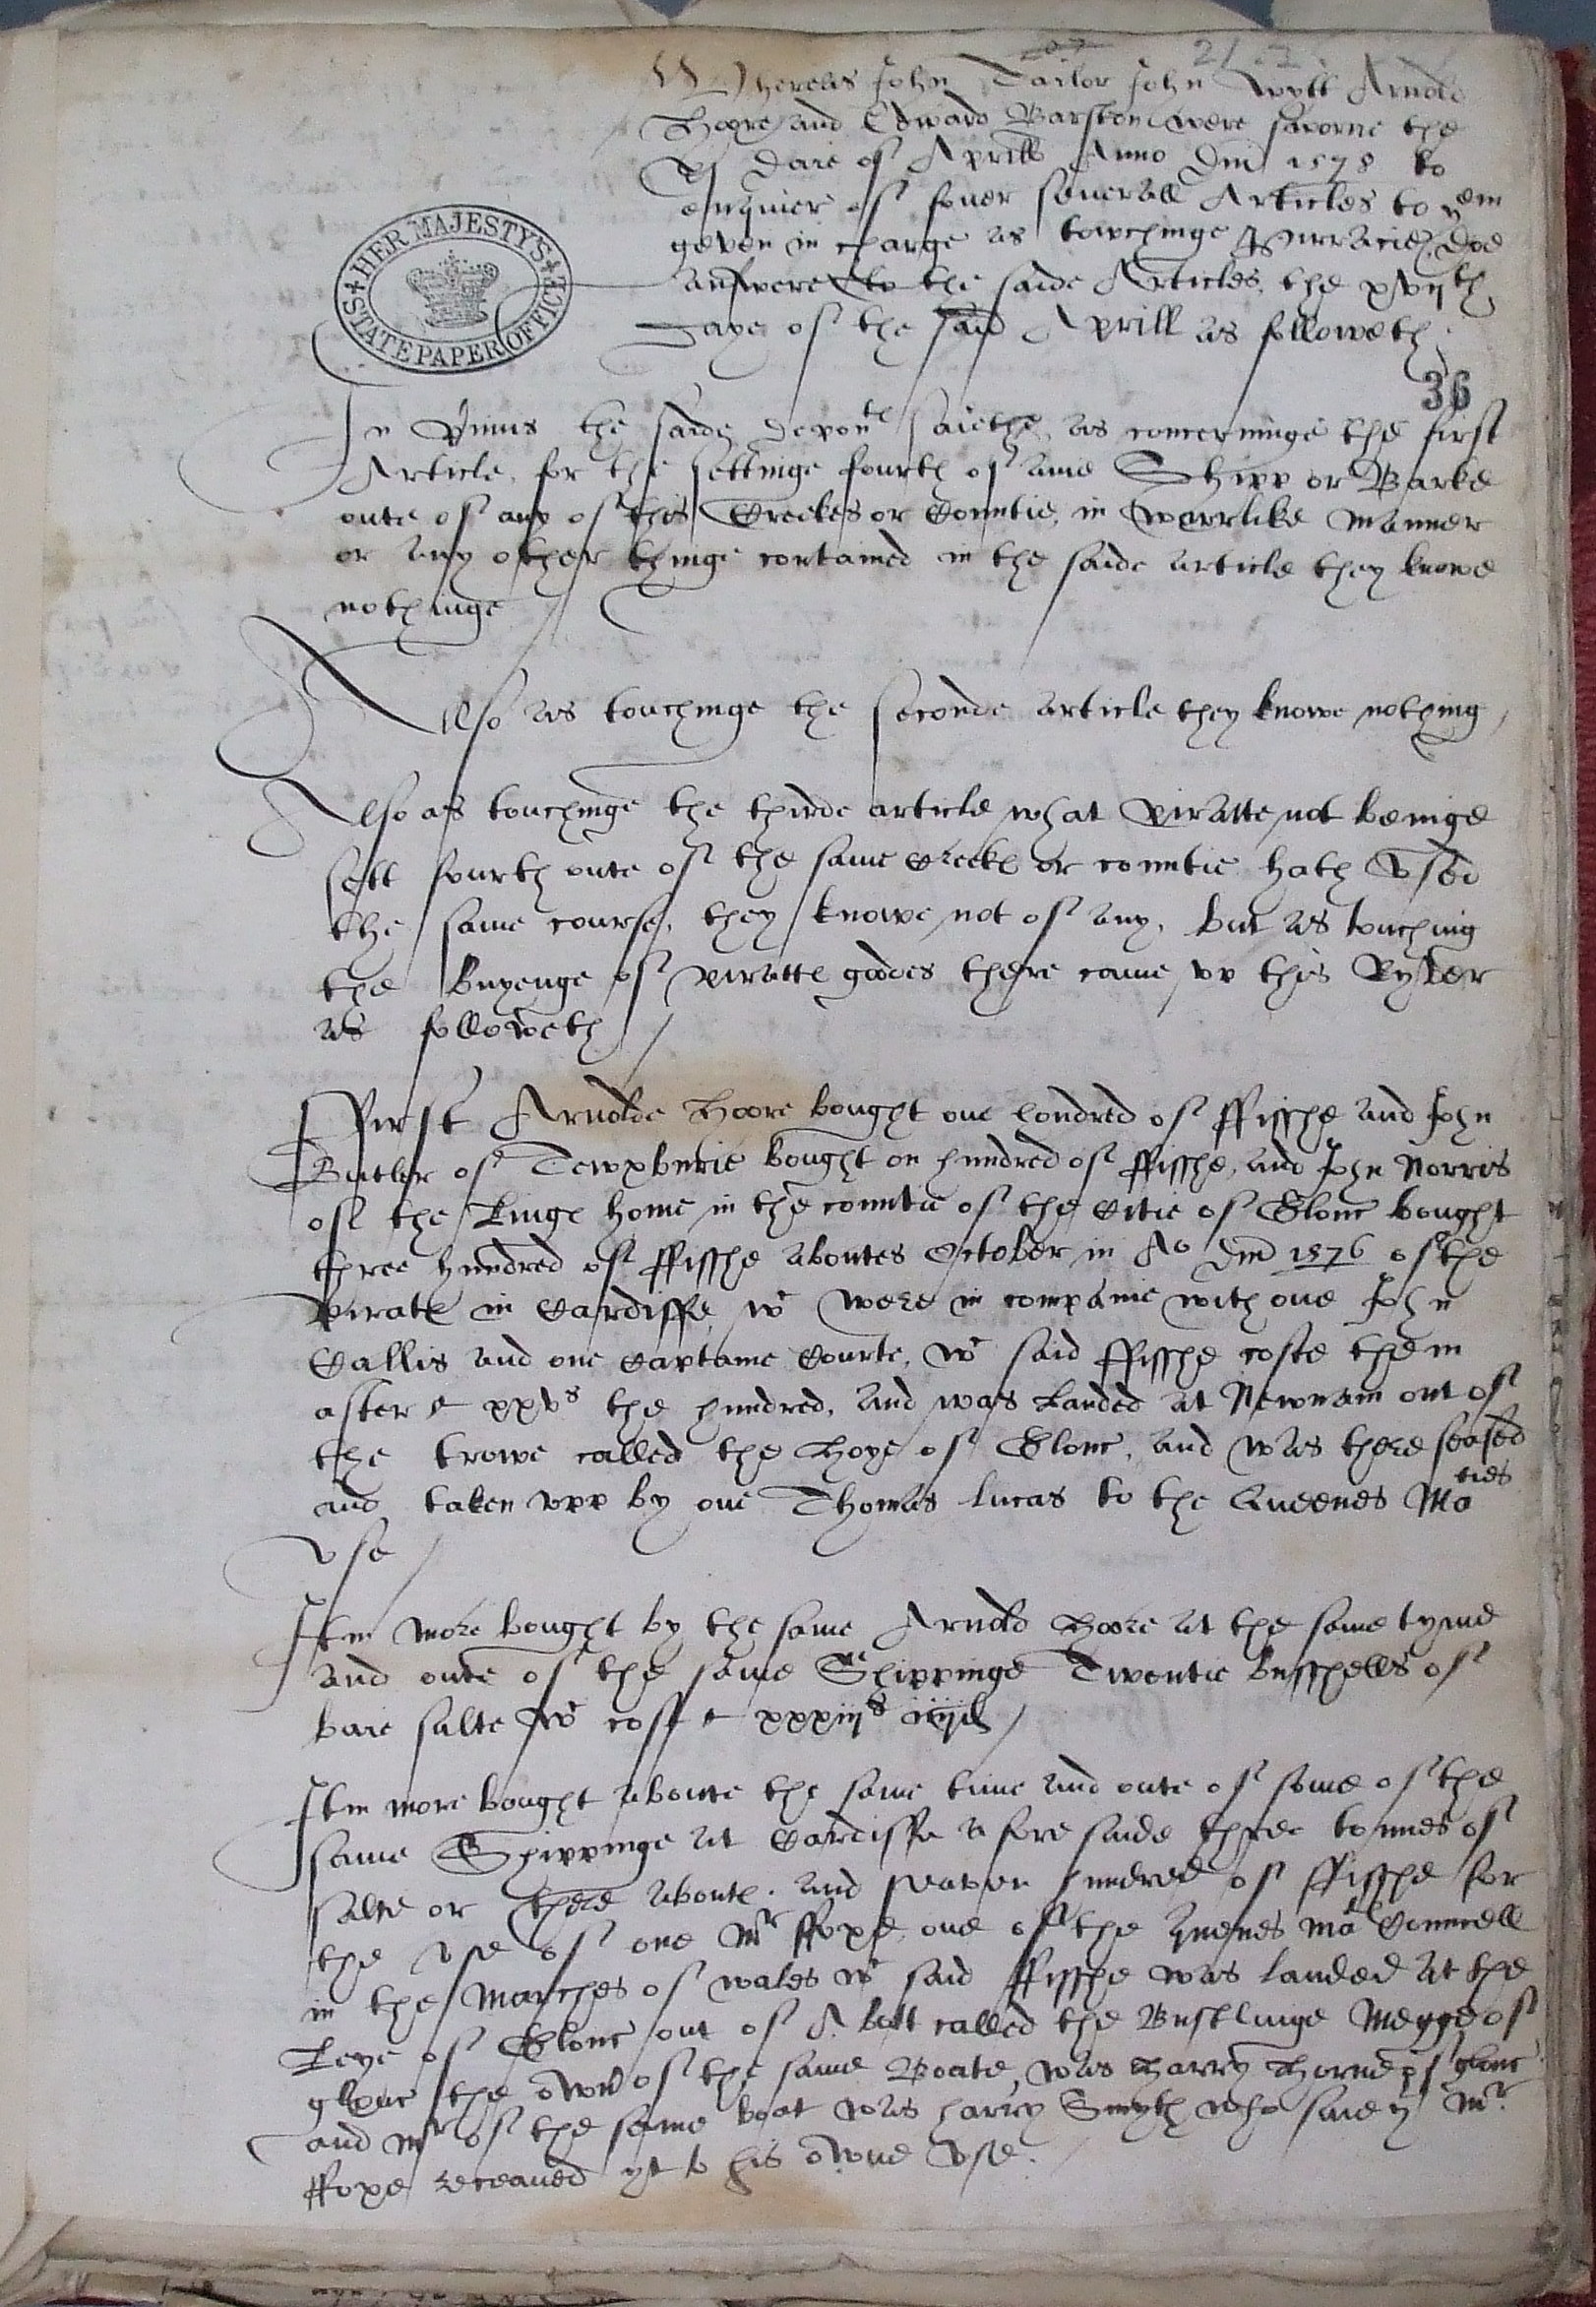 Whereas John Tailor John Wytt Arnold
Hoore and Edward Barston were sworne the
daie of Aprill Anno Dm̃ 1578 to
enquier of fouer severall Articles to yem
geven in charge as towchinge Pirracies, doe
answere to the saide Articles, the xvijth
daye of the said Aprill as followeth
HER MAJESTY'S STATE PAPER OFFICE
36
In primis the saide depont saiethe, as concerninge the first
Article, for the settinge fourth of anie Shipp or Barke
oute of any of this Creekes or Countie, in warrlike manner
or any other thinge contained in the saide article they knowe
nothinge
Also as touchinge the seconde article they knowe nothing
Also as touchinge the thirde article what piratte not beinge
sett fourth oute of the same Creeke or countie hath vsed
the same course, they knowe not of any, but as touching
the buyenge of piratte goodes there came vp this Ryver
as followeth
First Arnolde Hoore bought one hondred of ffisshe and John
Butler of Tewxburie bought on hundred of ffisshe, and John Norris
of the Kinge home in the countie of the Citie of Glouc bought
three hundred of ffisshe aboutes October in Ao Dm̃ 1576 of the
pirate in Cardiffe, wc were in companie with one John
Callis and one Captaine Courte, wc said ffisshe coste them
after xxvs the hundred, and was Landed at Newnam out of
the trowe called the Hope of Glouc, and was there seased
and taken vpp by one Thomas Lucas to the Queenes Maties
vse
Itm more bought by the same Arnold Hoore at the same tyme
and oute of the same Shippinge Twentie busshells of
baie salte wc cost xxxiijs iiijd
Itm more bought aboute the same time and oute of some of the
same Shippinge at Cardiffe afore saide three tonnes of
salte or there aboute. And seaven hundred of ffisshe for
the vse of one Mr ffoxe, one of the Quenes Ma Counsell
in the Marches of Wales wc said ffisshe was landed at the
Keye of Glouc out of A bott called the Brustlinge Megge of
glouc the own of the same Boate, was Harry Horne of glouc
and Mr of the same boat was harry Smyth who saie yt Mr
ffoxe receaued yt to his owne vse.